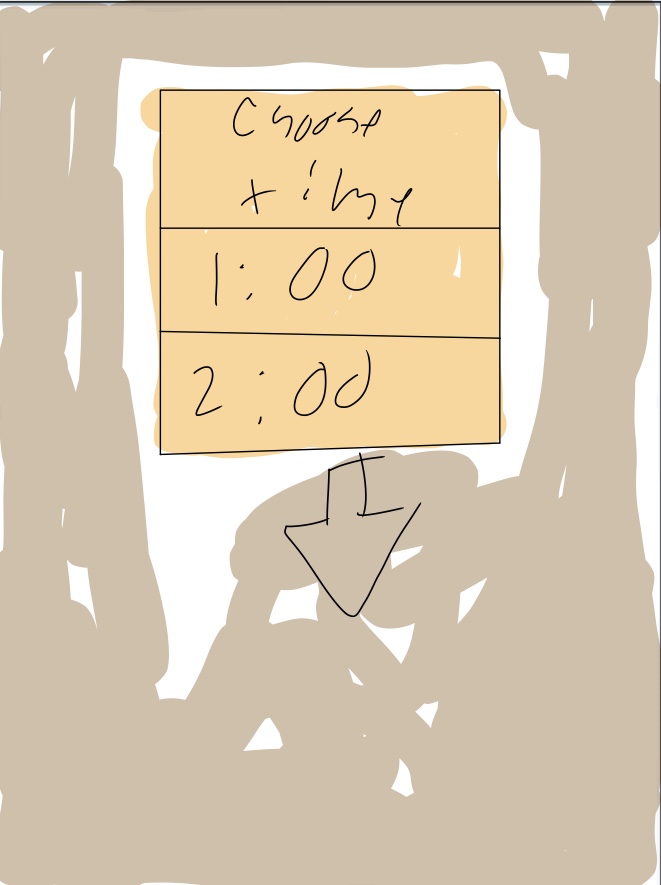 Choose
time
1:00
2:00